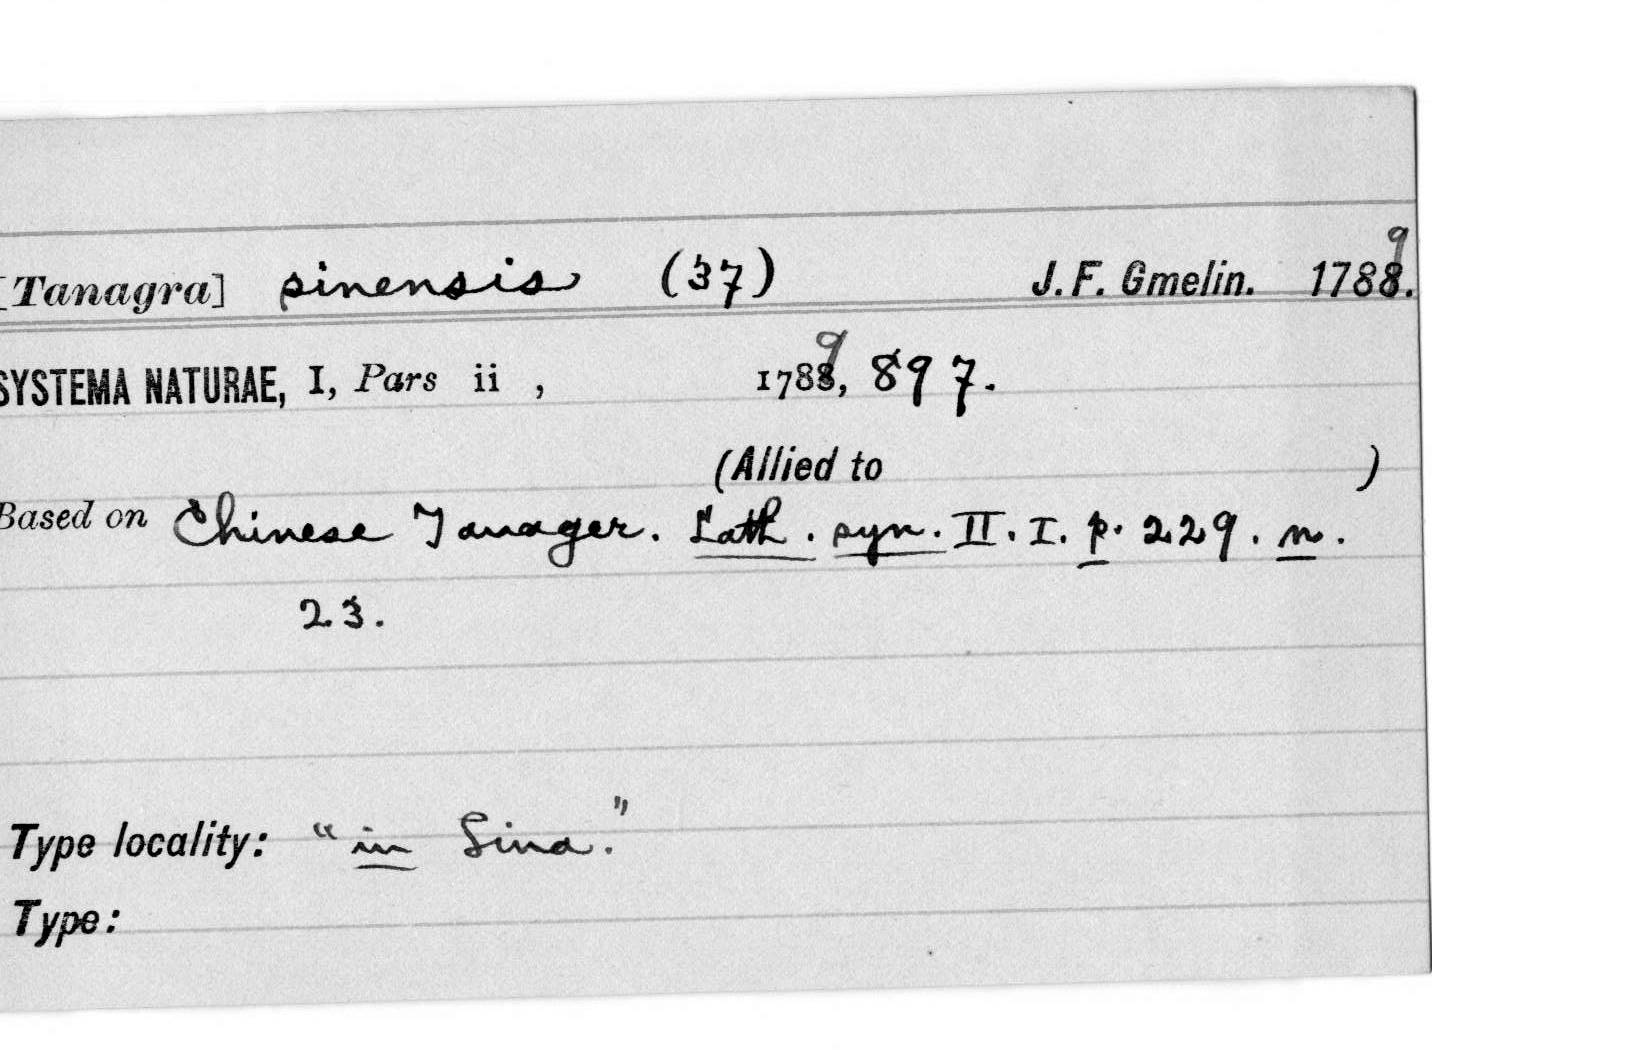 [Tanagra] sinensis (37) J. F. Gmelin. 1789.
SYSTEMA NATURAE, I, Pars ii , 1789, 897.
(Allied to )
Based on Chinese Tanager. Lath. syn. II. I. p. 229. n.
23.
Type locality: "in Sina."
Type: